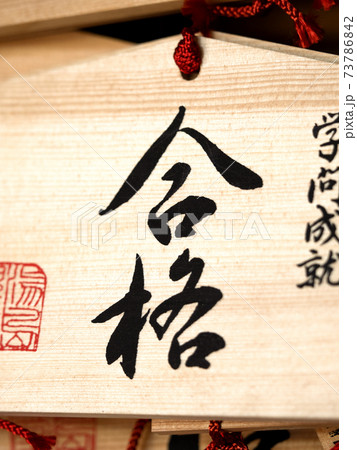 学問成就
合格
PIXTA
pixta.jp - 73786842